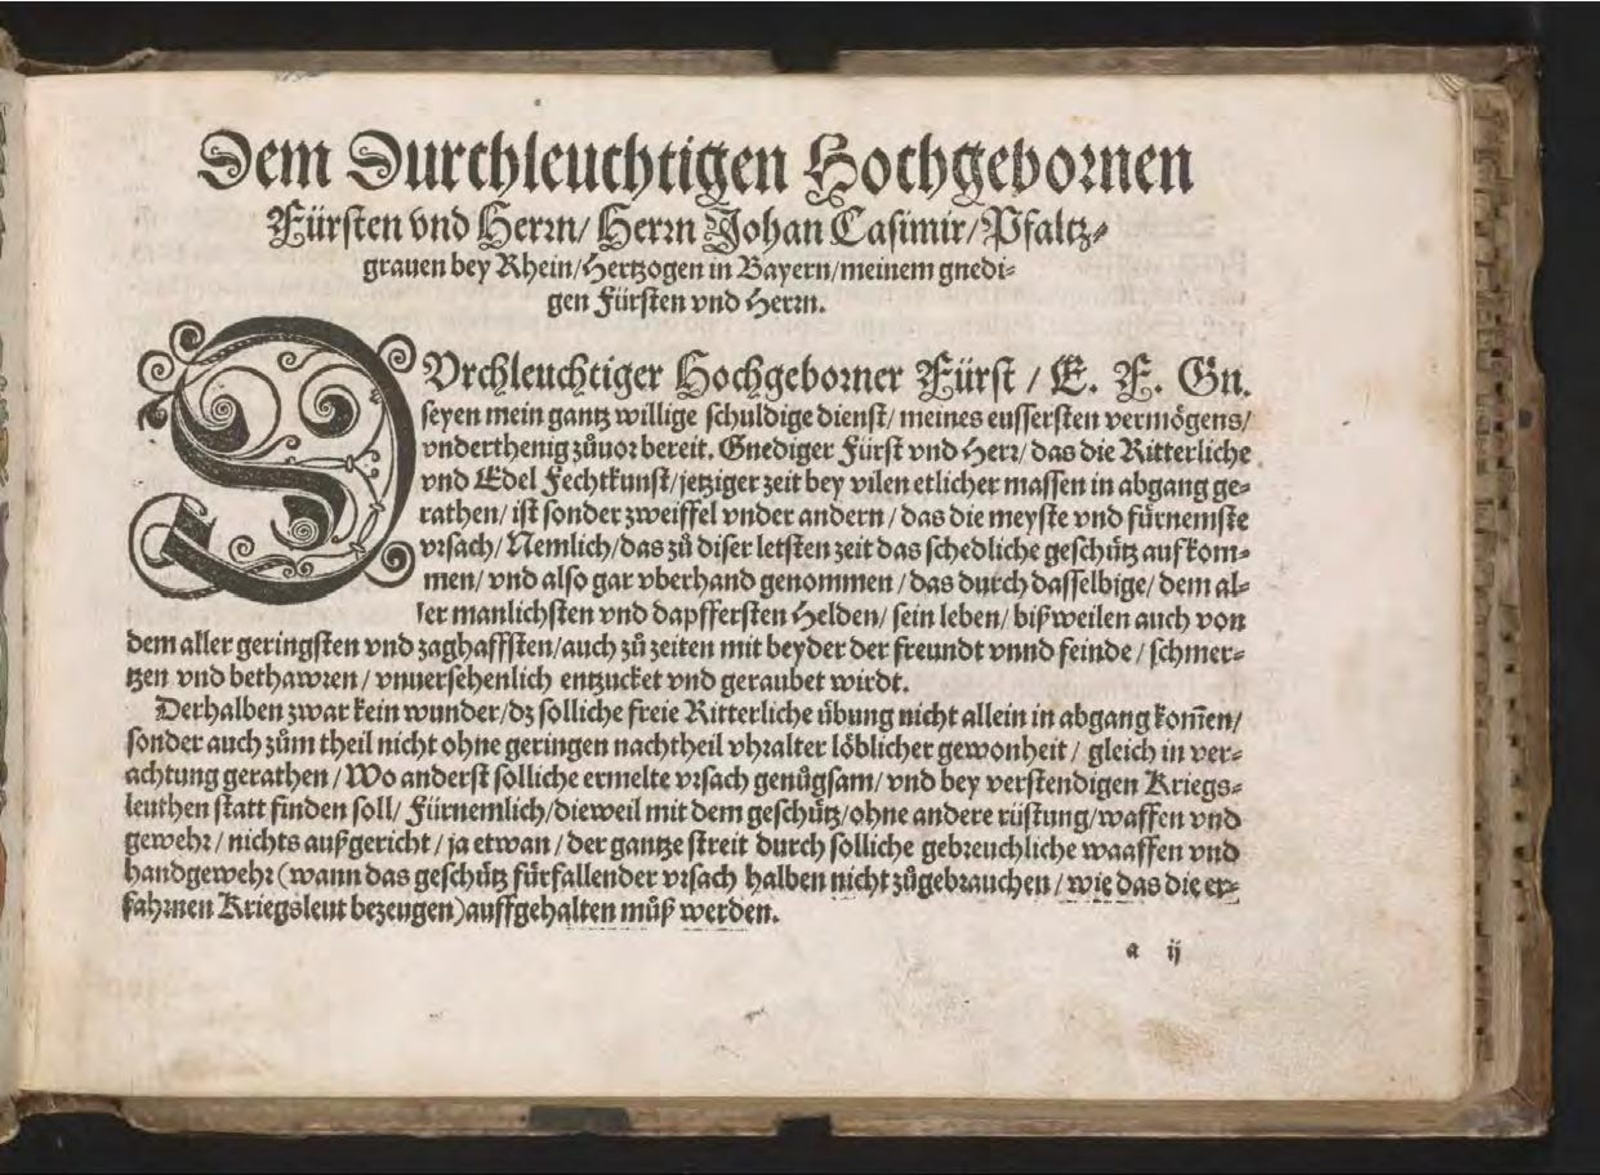 Dem Durchleuchtigen Hochgebornen
Fürsten vnd Herrn/ Herrn Johan Casimir/ Pfaltz⸗
grauen bey Rhein/ Hertzogen in Bayern/ meinem gnedi⸗
gen Fürsten vnd Herrn.
DVrchleuchtiger Hochgeborner Fürst / E. F. Gn.
seyen mein gantz willige schuldige dienst/ meines eussersten vermögens/
vnderthenig zůuor bereit. Gnediger Fürst vnd Herr/ das die Ritterliche
vnd Edel Fechtkunst/ jetziger zeit bey vilen etlicher massen in abgang ge⸗
rathen/ ist sonder zweiffel vnder andern / das die meyste vnd fürnemste
vrsach/ Nemlich/ das zů diser letsten zeit das schedliche geschütz auf kom⸗
men/ vnd also gar vberhand genommen / das durch dasselbige/ dem al⸗
ler manlichsten vnd dapffersten Helden/ sein leben/ bißweilen auch von
dem aller geringsten vnd zaghafften/ auch zů zeiten mit beyder der freundt vnnd feinde / schmer⸗
tzen vnd bethawren / vnuersehenlich entzucket vnd geraubet wirdt.
Derhalben zwar kein wunder/ dz solliche freie Ritterliche übung nicht allein in abgang kom̄en/
sonder auch zům theil nicht ohne geringen nachtheil vhralter löblicher gewonheit / gleich in ver⸗
achtung gerathen / Wo anderst solliche ermelte vrsach genůgsam/ vnd bey verstendigen Kriegs⸗
leuthen statt finden soll/ Fürnemlich/ dieweil mit dem geschütz/ ohne andere rüstung/ waffen vnd
gewehr / nichts außgericht / ja etwan / der gantze streit durch solliche gebreuchliche waaffen vnd
handgewehr (wann das geschütz fürfallender vrsach halben nicht zůgebrauchen / wie das die er⸗
fahrnen Kriegsleut bezeugen) auffgehalten můß werden.
a ij